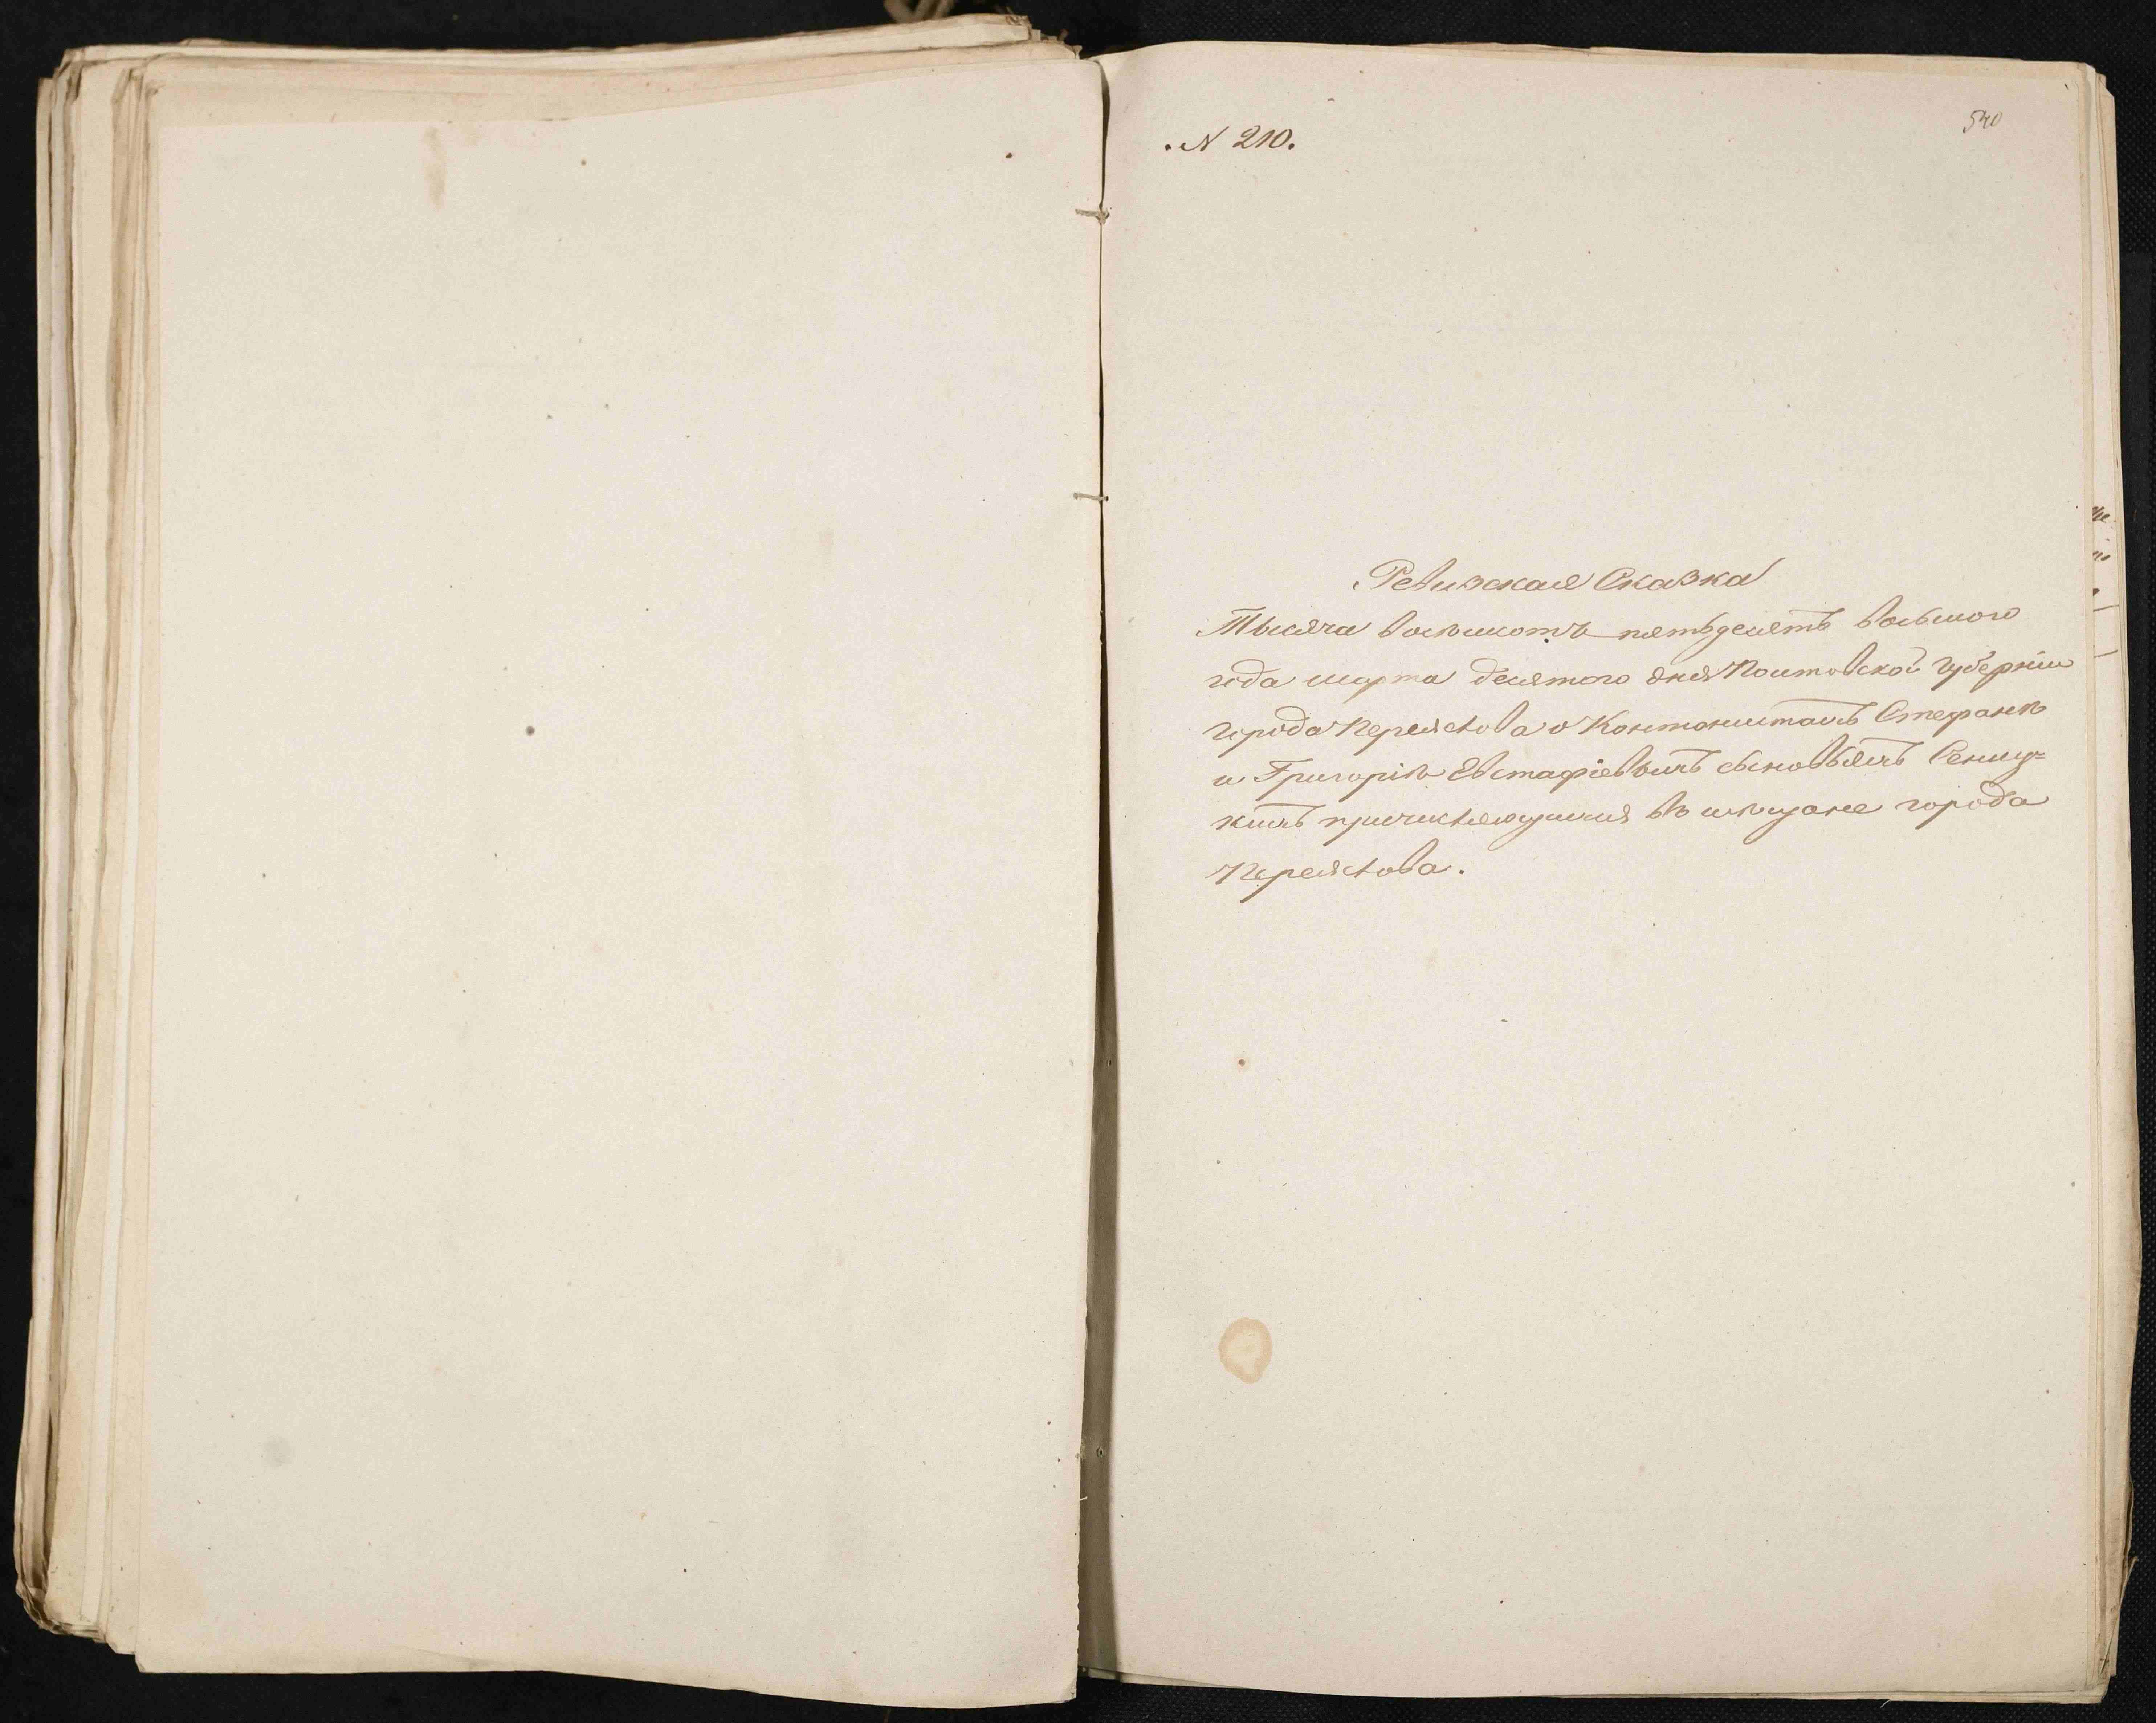 540
№ 210.
Ревизская Сказка
Тысяча восемсотъ пятьдесятъ восьмого
года марта десятого дня Полтавской Губерніи
города Переяслова о Кантонистахъ Стефанѣ
и Григоріѣ Евстафіевыхъ сыновьяхъ
причисляющихся въ мѣщане города
Переяслова.